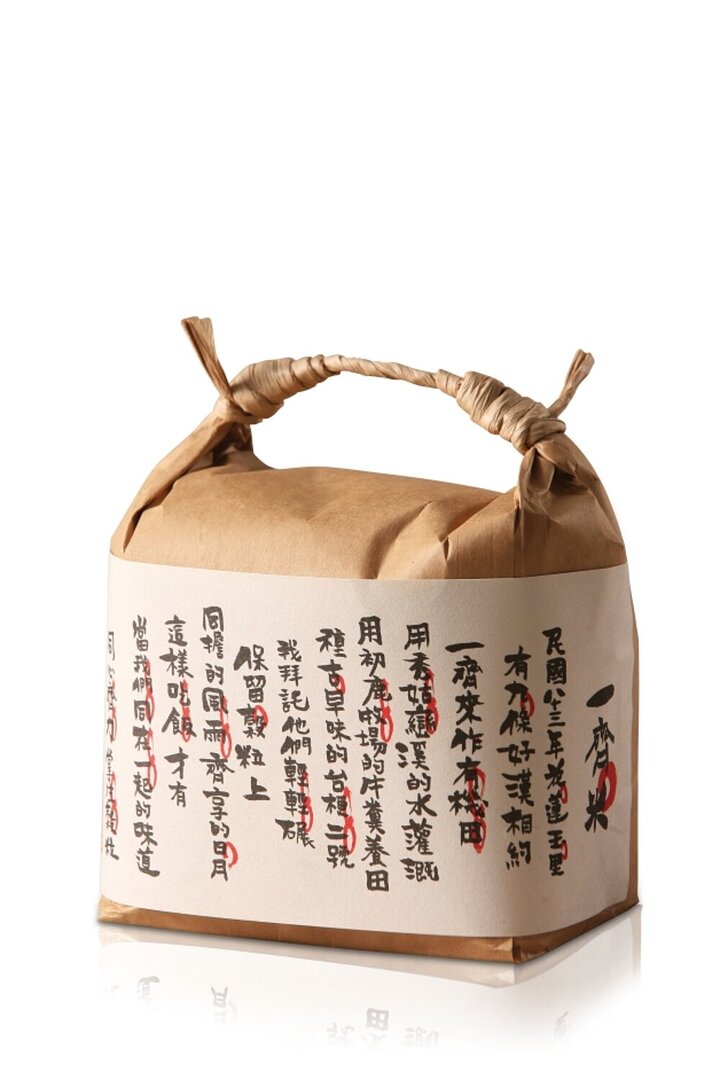 一齊米
民國八十三年花蓮玉里
有九條好漢相約
一齊來作有機田
用秀姑巒溪的水灌溉
用初鹿牧場的牛糞養田
種古早味的台稉二號
我拜託他們輕輕碾
保留穀粒上
同擔的風雨齊享的日月
這樣吃飯才有
當我們同在一起的味道
同心齊力